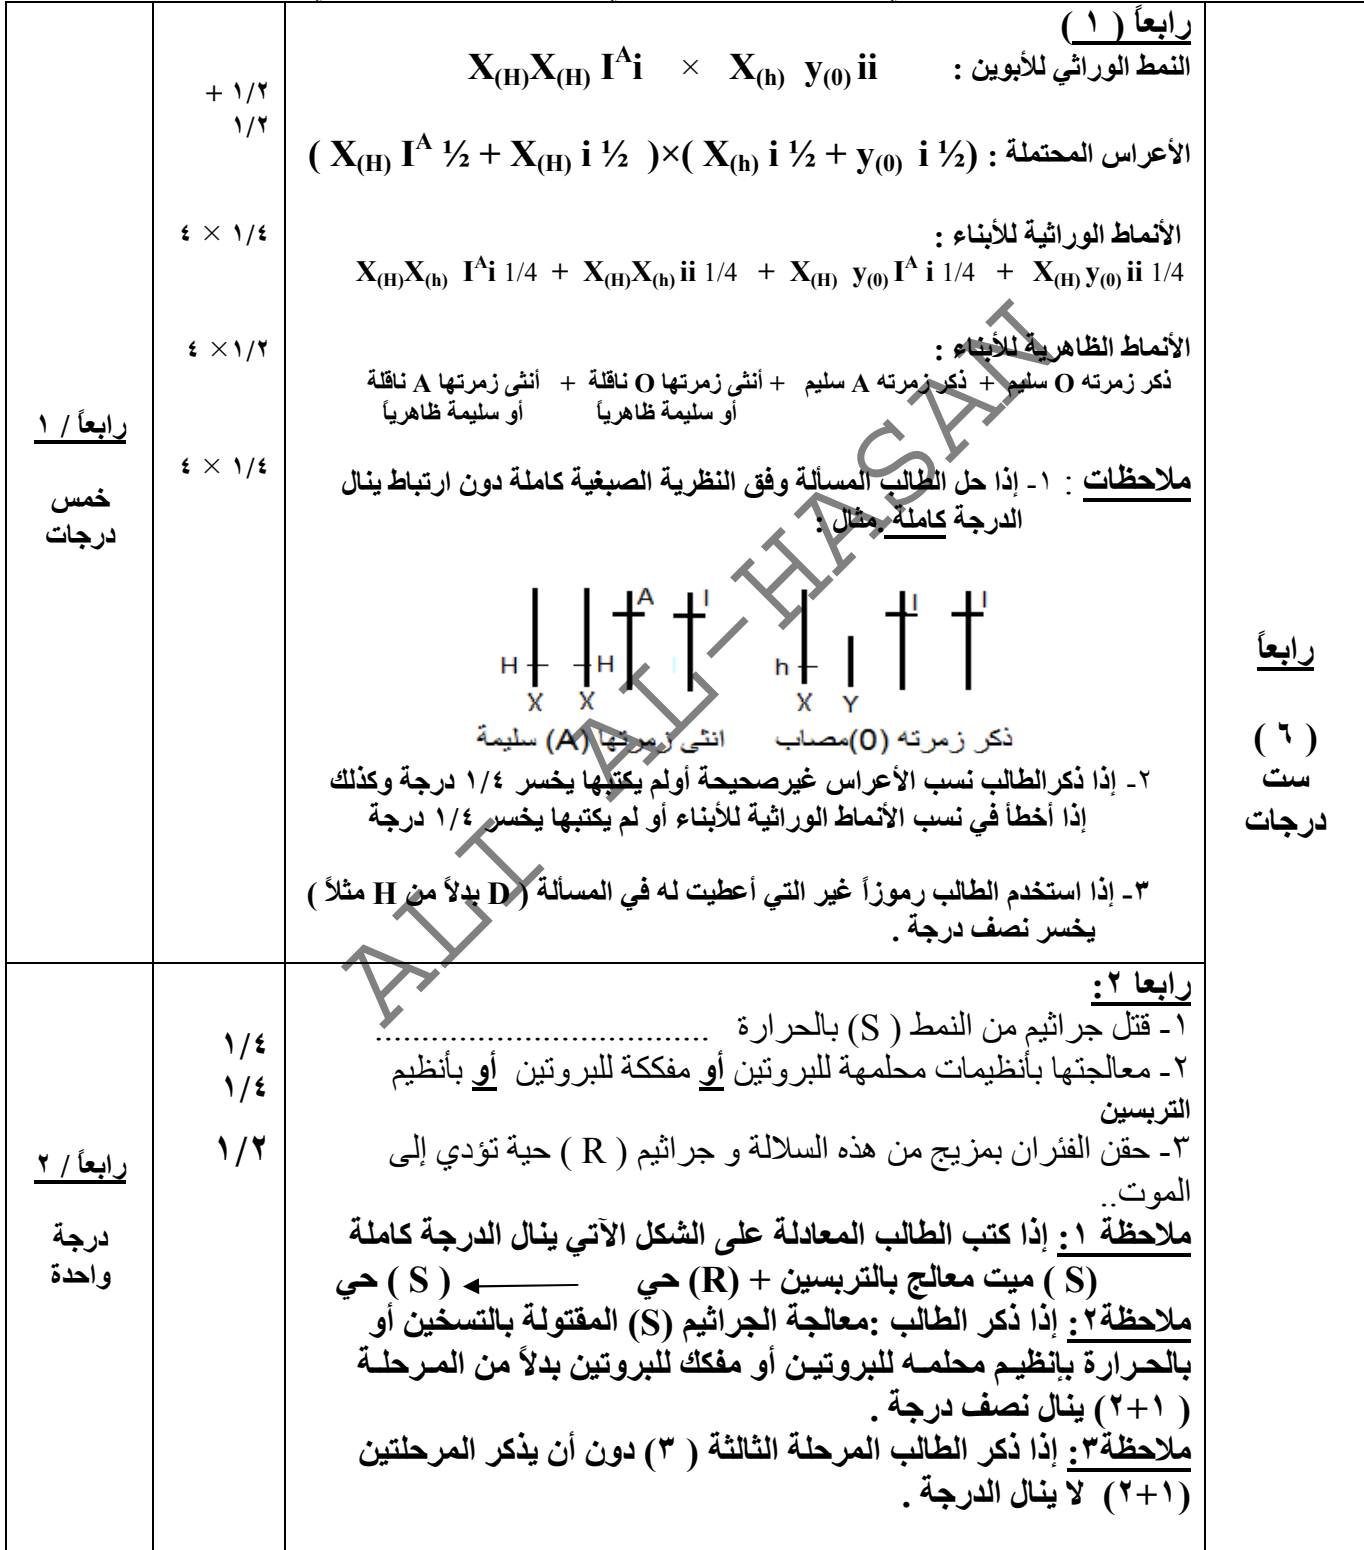 رابعاً ( ١ )
النمط الوراثي للأبوين : X(H)X(H) I^A i × X(h) y(0) ii
١/٢ +
١/٢
الأعراس المحتملة : ( X(H) I^A ½ + X(H) i ½ )×( X(h) i ½ + y(0) i ½)
الأنماط الوراثية للأبناء :
٤ × ١/٤
X(H)X(h) I^A i 1/4 + X(H)X(h) ii 1/4 + X(H) y(0) I^A i 1/4 + X(H) y(0) ii 1/4
الأنماط الظاهرية للأبناء :
٤ ×١/٢
ذكر زمرته O سليم + ذكر زمرته A سليم + أنثى زمرتها O ناقلة + أنثى زمرتها A ناقلة
أو سليمة ظاهرياً أو سليمة ظاهرياً
رابعاً / ١
خمس
درجات
٤ × ١/٤
ملاحظات : ١- إذا حل الطالب المسألة وفق النظرية الصبغية كاملة دون ارتباط ينال
الدرجة كاملة .مثال :
A I I I
H H h
X X X Y
انثى زمرتها (A) سليمة ذكر زمرته (0)مصاب
٢- إذا ذكرالطالب نسب الأعراس غيرصحيحة أولم يكتبها يخسر ١/٤ درجة وكذلك
إذا أخطأ في نسب الأنماط الوراثية للأبناء أو لم يكتبها يخسر ١/٤ درجة
٣- إذا استخدم الطالب رموزاً غير التي أعطيت له في المسألة ( D بدلاً من H مثلاً )
يخسر نصف درجة .
رابعاً
( ٦ )
ست
درجات
رابعا ٢:
١- قتل جراثيم من النمط ( S) بالحرارة .....................................
١/٤
٢- معالجتها بأنظيمات محلمهة للبروتين أو مفككة للبروتين أو بأنظيم
١/٤
التربسين
٣- حقن الفئران بمزيج من هذه السلالة و جراثيم ( R ) حية تؤدي إلى
١/٢
الموت..
رابعاً / ٢
درجة
واحدة
ملاحظة ١: إذا كتب الطالب المعادلة على الشكل الآتي ينال الدرجة كاملة
(S ) ميت معالج بالتربسين + (R) حي ← ( S ) حي
ملاحظة٢: إذا ذكر الطالب :معالجة الجراثيم (S) المقتولة بالتسخين أو
بالحرارة بإنظيم محلمه للبروتين أو مفكك للبروتين بدلاً من المرحلة
( ١+٢) ينال نصف درجة .
ملاحظة٣: إذا ذكر الطالب المرحلة الثالثة ( ٣) دون أن يذكر المرحلتين
(١+٢) لا ينال الدرجة .
ALI AL-HASAN